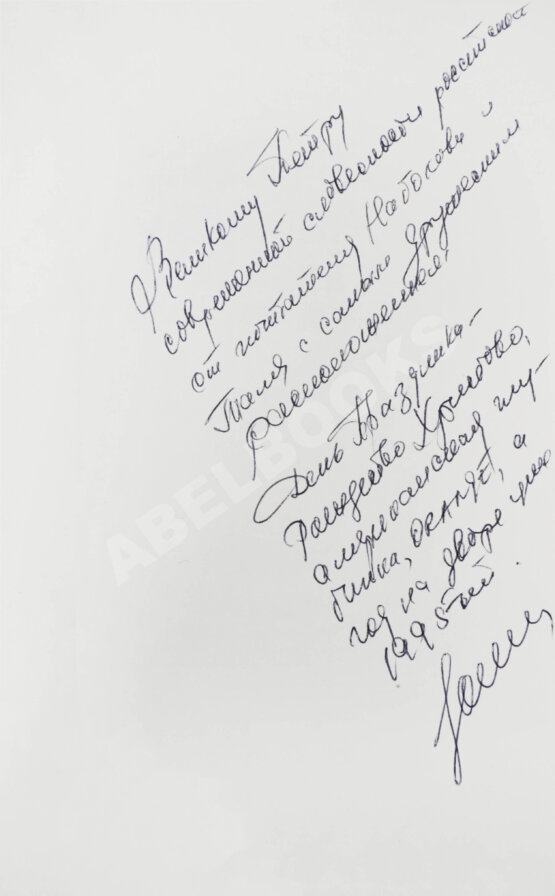 Великому Петру
современной словесности российской
от почитателя Набокова и
с самым дружеским
расположением!
День Праздника-
Рождество Христово,
американская глу-
бинка, ORANGE, а
год на дворе уже
1995-ый.
ABELBOOKS